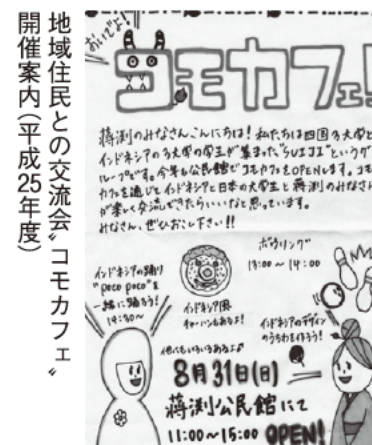 地域住民との交流会〝コモカフェ〟
開催案内(平成25年度)
おいでよ!
コモカフェ!
蒋渕のみなさんこんにちは!私たちは四国3大学と
インドネシアの3大学の学生が集まった"SUIJI"というグ
ループです。今年も公民館でコモカフェをOPENします。コモ
カフェを通じてインドネシアと日本の大学生と蒋渕のみなさん
が楽しく交流できたらいいなと思っています。
みなさん、ぜひおこし下さい!!
ボウリング
13:00~14:00
インドネシアの踊り
"poco poco"を
一緒に踊ろう!
14:30~
インドネシア風
チャーハンもあるよ!
インドネシアのデザイン
のうちわを作ろう!
他にもいろいろあるよ♪
8月31日(日)
蒋渕公民館にて
11:00~15:00 OPEN!